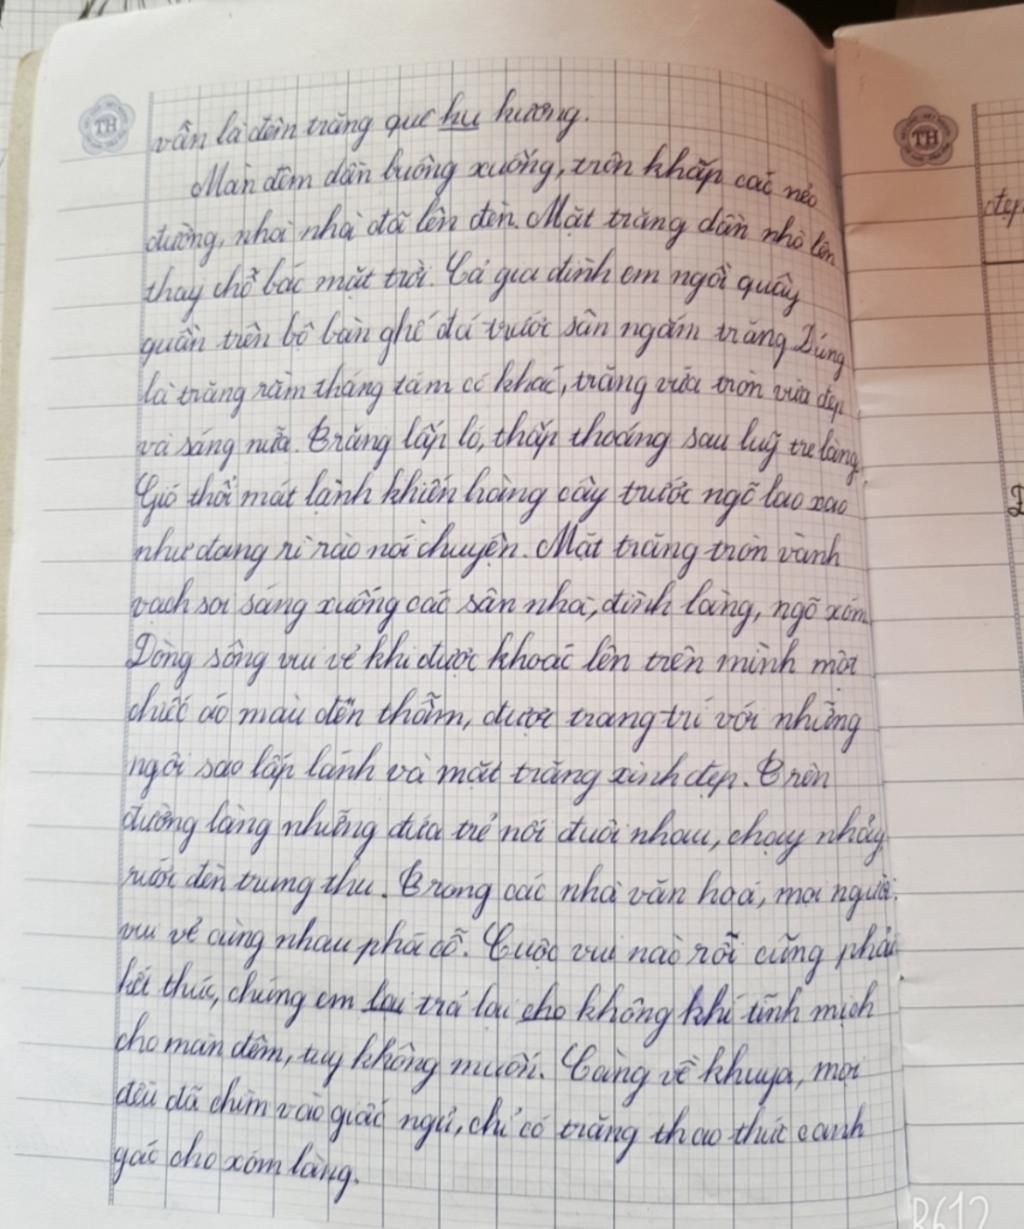 TH
TH
vẫn là đêm trăng quê hu hương.
Màn đêm dần buông xuống, trên khắp các nẻo
đường, nhà nhà đã lên đèn. Mặt trăng dần nhô lên
thay chỗ bác mặt trời. Cả gia đình em ngồi quây
quần trên bộ bàn ghế đá trước sân ngắm trăng Đúng
là trăng rằm tháng tám có khác, trăng vừa tròn vừa đẹp
và sáng nữa. Trăng lấp ló, thấp thoáng sau luỹ tre làng.
Gió thổi mát lành khiến hàng cây trước ngõ lao xao
như đang rì rào nói chuyện. Mặt trăng tròn vành
vạch soi sáng xuống các sân nhà, đình làng, ngõ xóm
Dòng sông vui vẻ khi được khoác lên trên mình một
chiếc áo màu đen thẫm, được trang trí với những
ngôi sao lấp lánh và mặt trăng xinh đẹp. Trên
đường làng những đứa trẻ nối đuôi nhau, chạy nhảy
rước đèn trung thu. Trong các nhà văn hoá, mọi người
vui vẻ cùng nhau phá cỗ. Cuộc vui nào rồi cũng phải
kết thúc, chúng em lại trả lại cho không khí tĩnh mịch
cho màn đêm, tuy không muốn. Càng về khuya, mọi
đều đã chìm vào giấc ngủ, chỉ có trăng thao thức canh
gác cho xóm làng.
đẹp
B612